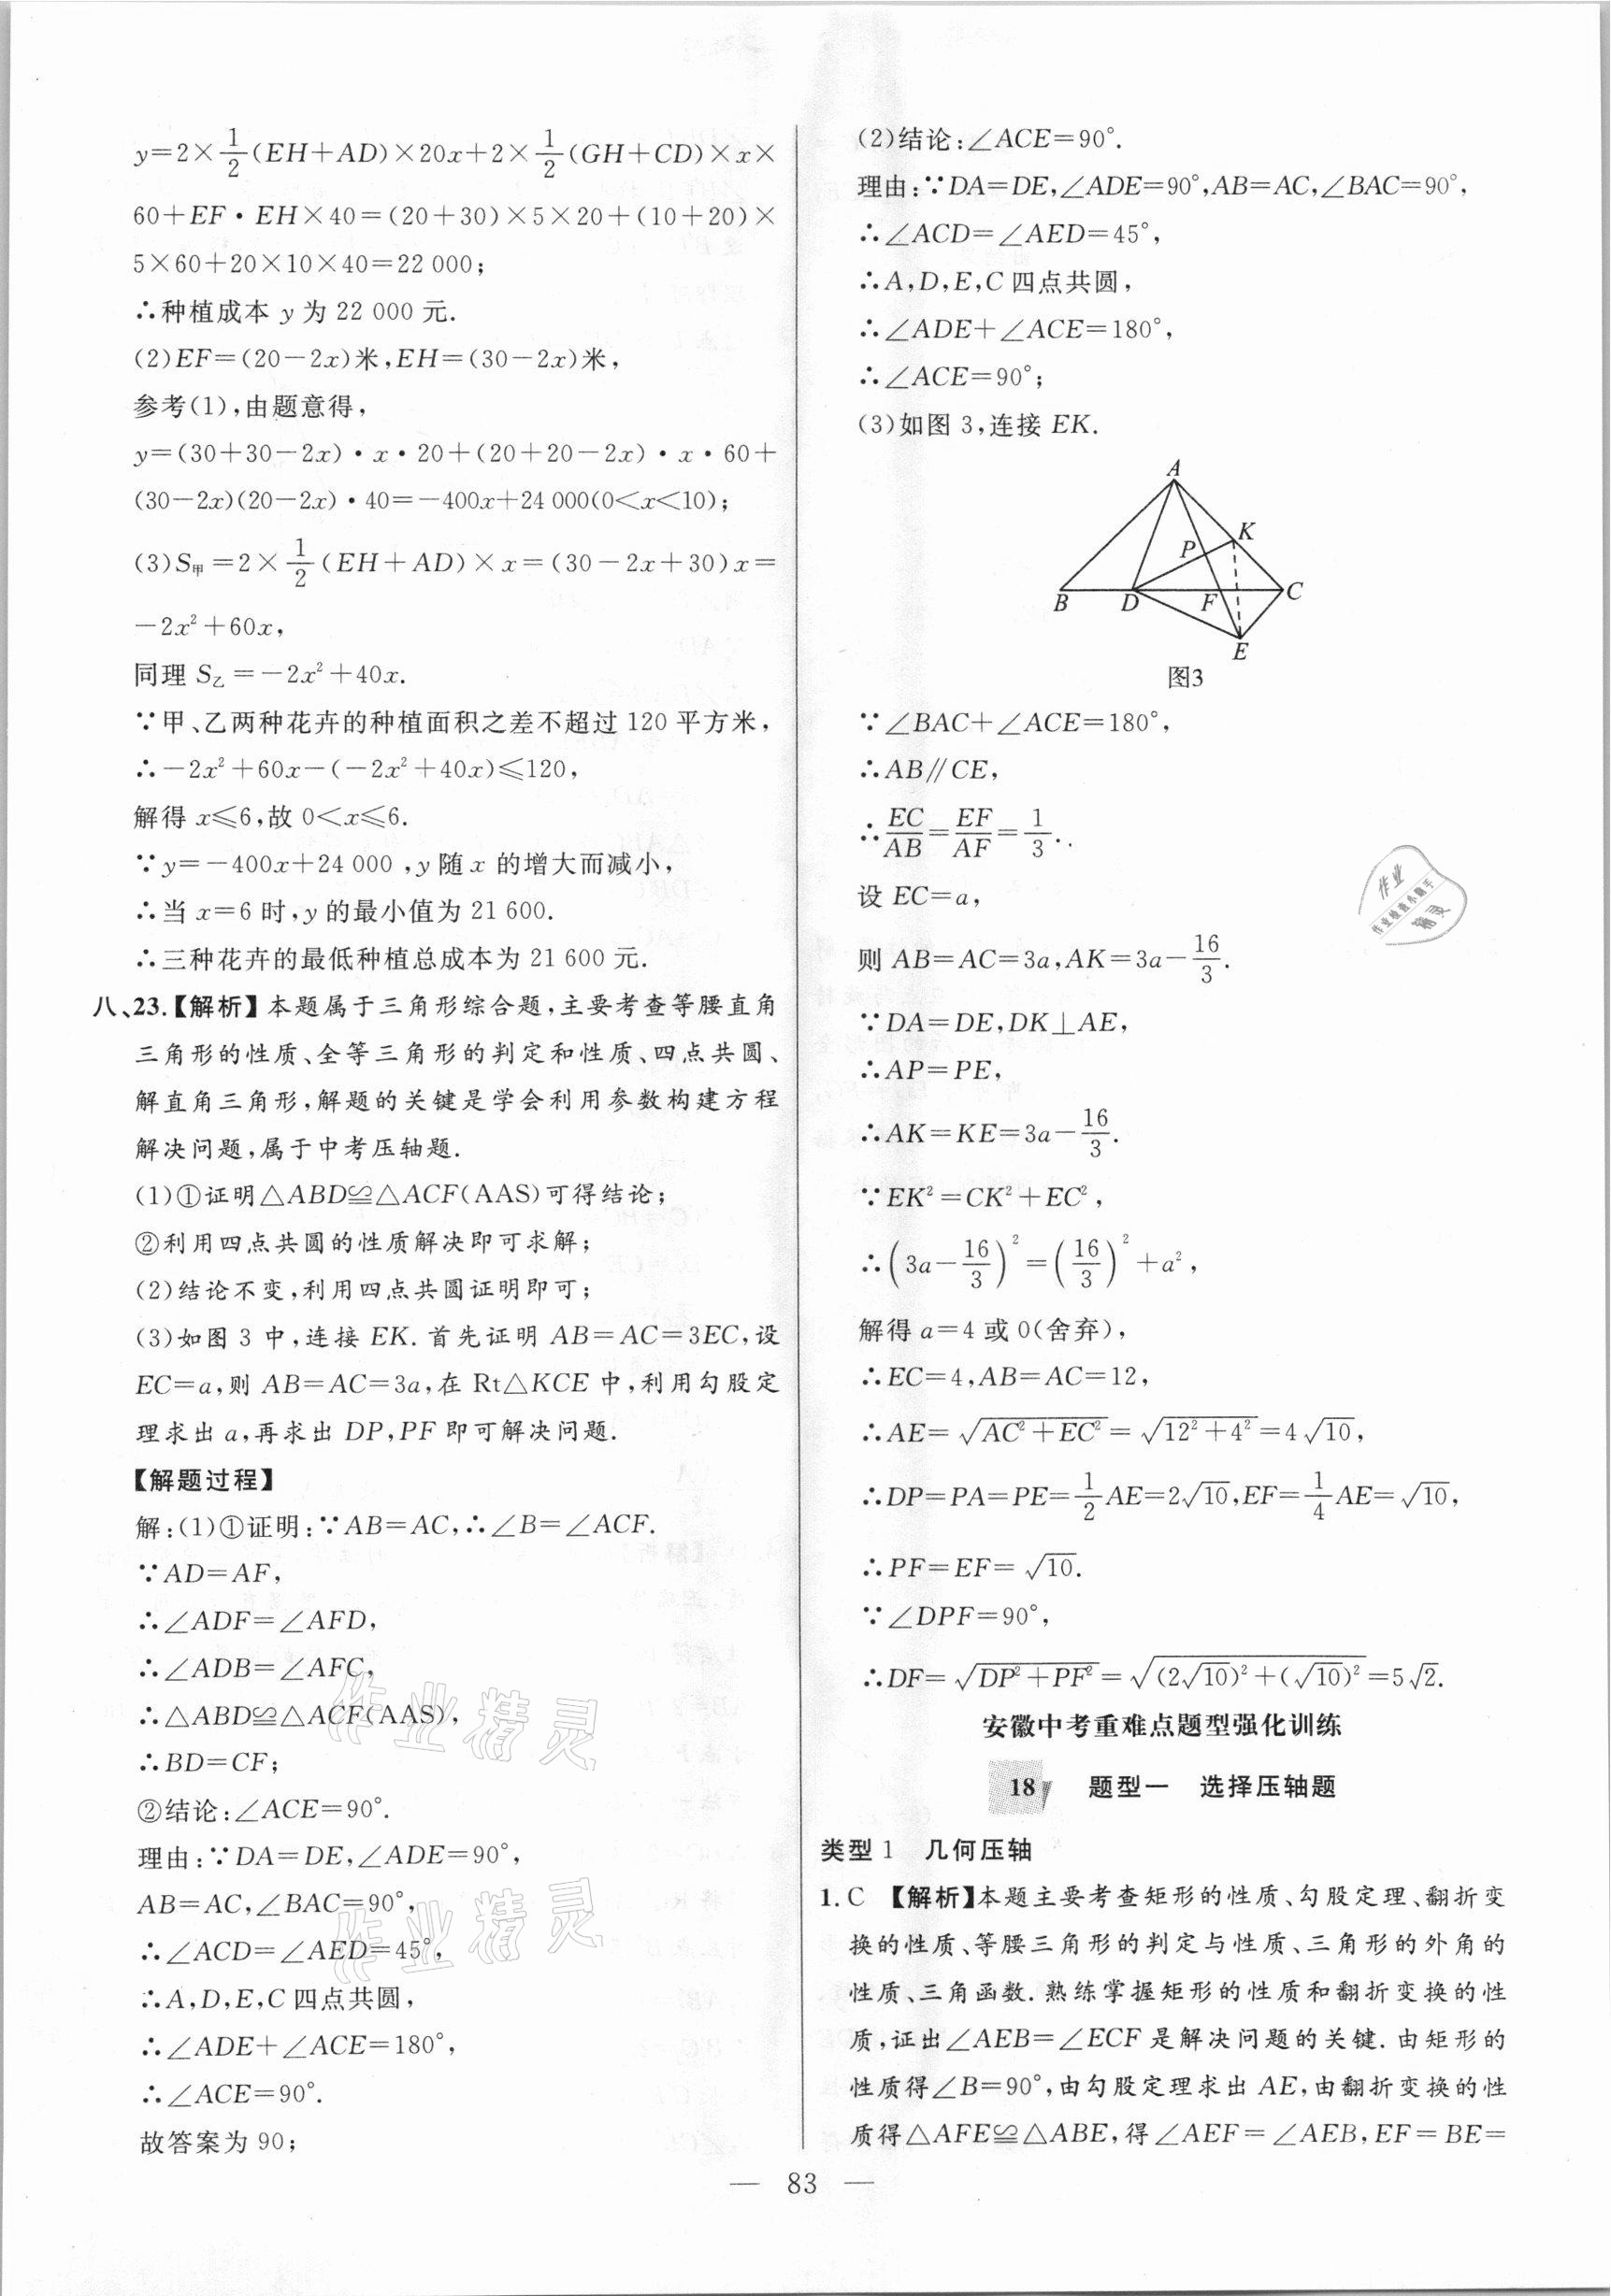 y=2×1/2(EH+AD)×20x+2×1/2(GH+CD)×x×
60+EF·EH×40=(20+30)×5×20+(10+20)×
5×60+20×10×40=22 000;
∴种植成本 y 为 22 000 元.
(2)EF=(20-2x)米,EH=(30-2x)米,
参考(1),由题意得,
y=(30+30-2x)·x·20+(20+20-2x)·x·60+
(30-2x)(20-2x)·40=-400x+24 000(0<x<10);
(3)S甲=2×1/2(EH+AD)×x=(30-2x+30)x=
-2x²+60x,
同理 S乙=-2x²+40x.
∵甲、乙两种花卉的种植面积之差不超过 120 平方米,
∴-2x²+60x-(-2x²+40x)≤120,
解得 x≤6,故 0<x≤6.
∵y=-400x+24 000,y 随 x 的增大而减小,
∴当 x=6 时,y 的最小值为 21 600.
∴三种花卉的最低种植总成本为 21 600 元.
八、23.【解析】本题属于三角形综合题,主要考查等腰直角
三角形的性质、全等三角形的判定和性质、四点共圆、
解直角三角形,解题的关键是学会利用参数构建方程
解决问题,属于中考压轴题.
(1)①证明△ABD≌△ACF(AAS)可得结论;
②利用四点共圆的性质解决即可求解;
(2)结论不变,利用四点共圆证明即可;
(3)如图 3 中,连接 EK. 首先证明 AB=AC=3EC,设
EC=a,则 AB=AC=3a,在 Rt△KCE 中,利用勾股定
理求出 a,再求出 DP,PF 即可解决问题.
【解题过程】
解:(1)①证明:∵AB=AC,∴∠B=∠ACF.
∵AD=AF,
∴∠ADF=∠AFD,
∴∠ADB=∠AFC,
∴△ABD≌△ACF(AAS),
∴BD=CF;
②结论:∠ACE=90°.
理由:∵DA=DE,∠ADE=90°,
AB=AC,∠BAC=90°,
∴∠ACD=∠AED=45°,
∴A,D,E,C 四点共圆,
∴∠ADE+∠ACE=180°,
∴∠ACE=90°.
故答案为 90;
(2)结论:∠ACE=90°.
理由:∵DA=DE,∠ADE=90°,AB=AC,∠BAC=90°,
∴∠ACD=∠AED=45°,
∴A,D,E,C 四点共圆,
∴∠ADE+∠ACE=180°,
∴∠ACE=90°;
(3)如图 3,连接 EK.
A
K
P
B D F C
E
图3
∵∠BAC+∠ACE=180°,
∴AB∥CE,
∴EC/AB=EF/AF=1/3..
设 EC=a,
则 AB=AC=3a,AK=3a-16/3.
∵DA=DE,DK⊥AE,
∴AP=PE,
∴AK=KE=3a-16/3.
∵EK²=CK²+EC²,
∴(3a-16/3)²=(16/3)²+a²,
解得 a=4 或 0(舍弃),
∴EC=4,AB=AC=12,
∴AE=√(AC²+EC²)=√(12²+4²)=4√10,
∴DP=PA=PE=1/2AE=2√10,EF=1/4AE=√10,
∴PF=EF=√10.
∵∠DPF=90°,
∴DF=√(DP²+PF²)=√((2√10)²+(√10)²)=5√2.
安徽中考重难点题型强化训练
18 题型一 选择压轴题
类型 1 几何压轴
1.C 【解析】本题主要考查矩形的性质、勾股定理、翻折变
换的性质、等腰三角形的判定与性质、三角形的外角的
性质、三角函数. 熟练掌握矩形的性质和翻折变换的性
质,证出∠AEB=∠ECF 是解决问题的关键. 由矩形的
性质得∠B=90°,由勾股定理求出 AE,由翻折变换的性
质得△AFE≌△ABE,得∠AEF=∠AEB,EF=BE=
— 83 —
作业
作业检查小助手
精灵
作业精灵
作业精灵